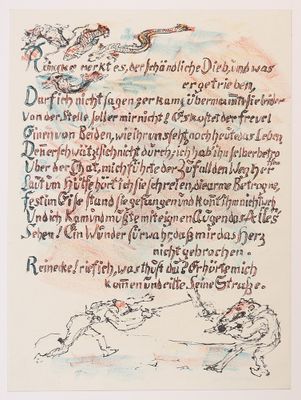 Reineke merkt es, der schändliche Dieb, und was
er getrieben,
Darf ich nicht sagen er kam, übermannte sie leider
Von der Stelle soller mir nicht! Es kostet der frevel
Einen von Beiden, wie ihr uns seht, noch heute das Leben
Denn er schwätzt sich nicht durch; ich hab ihn selber
Über der That, mich führte der Zufall den Weg her
Laut um Hülfe hört ich sie schreien, die arme Betrogne,
Fest im Eise stand sie gefangen und konnt ihm nicht
Und ich kam und mußte mit eignen Augen das Alles
Sehen! Ein Wunder fürwahr, daß mir das Herz
nicht gebrochen.
Reinecke! rief ich, was thust du? Er hörte mich
kommen und eilte Seine Straße.